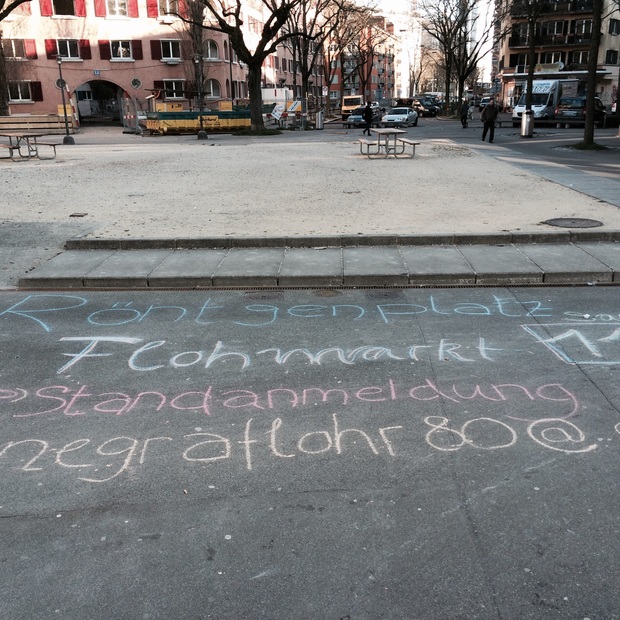 Röntgenplatz
Flohmarkt 11
Standanmeldung
negraflohr80@